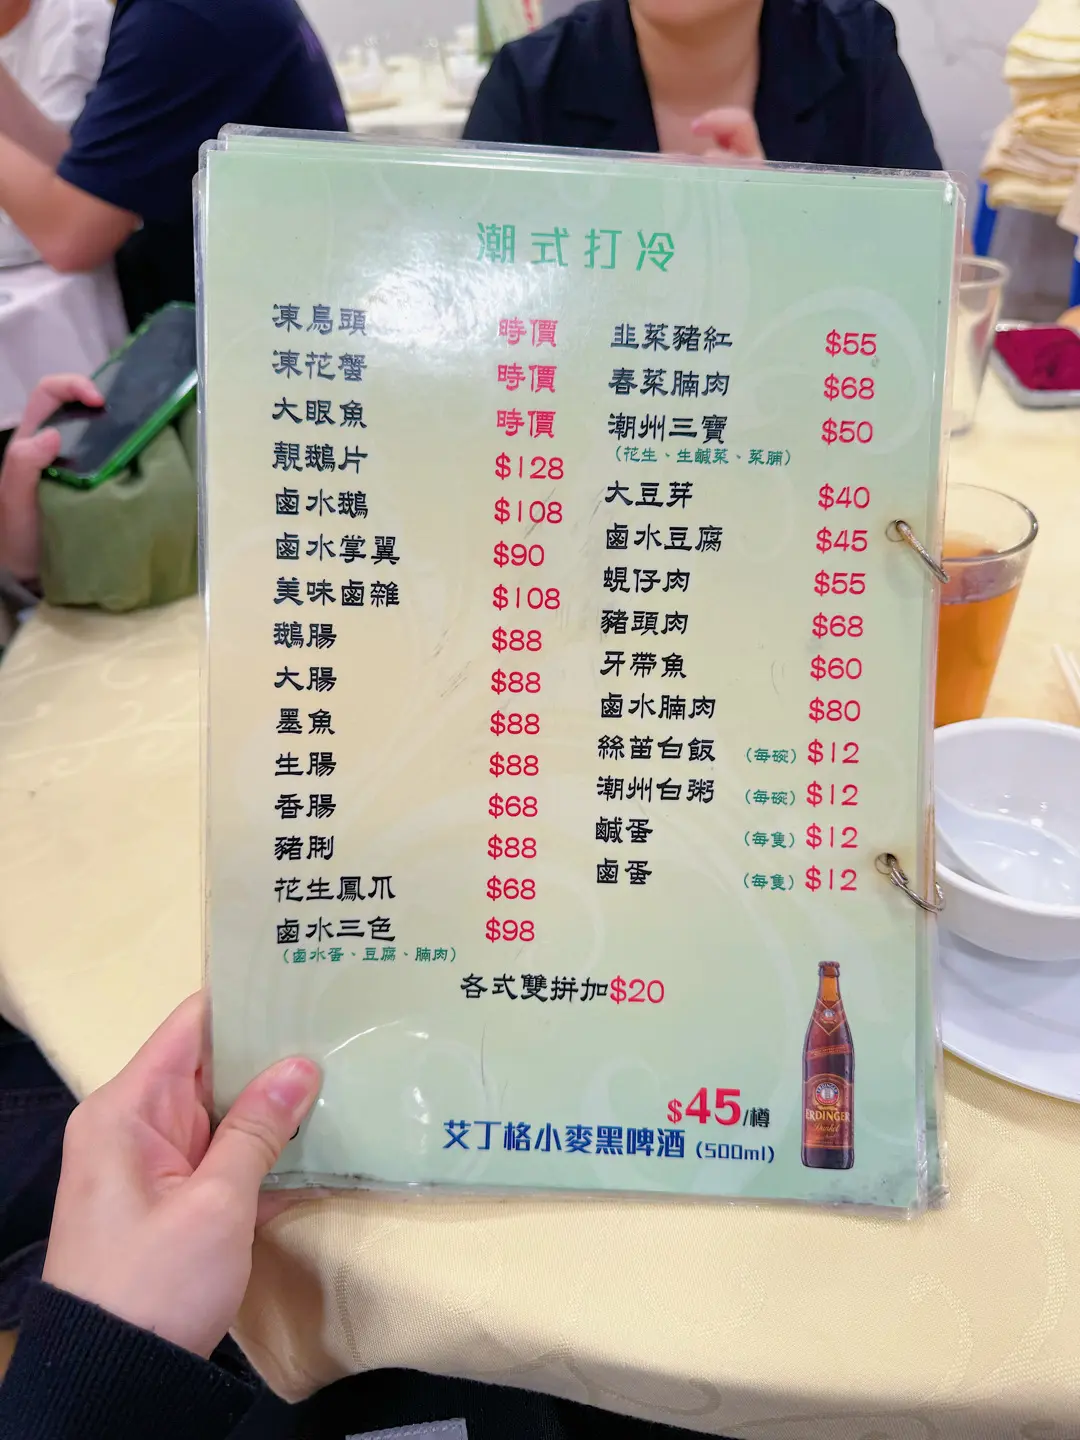 潮式打冷
凍烏頭 時價
凍花蟹 時價
大眼魚 時價
靚鵝片 $128
鹵水鵝 $108
鹵水掌翼 $90
美味鹵雜 $108
鵝腸 $88
大腸 $88
墨魚 $88
生腸 $88
香腸 $68
豬脷 $88
花生鳳爪 $68
鹵水三色 $98
（鹵水蛋、豆腐、腩肉）
韭菜豬紅 $55
春菜腩肉 $68
潮州三寶 $50
（花生、生鹹菜、菜脯）
大豆芽 $40
鹵水豆腐 $45
蜆仔肉 $55
豬頭肉 $68
牙帶魚 $60
鹵水腩肉 $80
絲苗白飯 （每碗） $12
潮州白粥 （每碗） $12
鹹蛋 （每隻） $12
鹵蛋 （每隻） $12
各式雙拼加$20
$45/樽
艾丁格小麥黑啤酒 (500ml)
ERDINGER
Dunkel